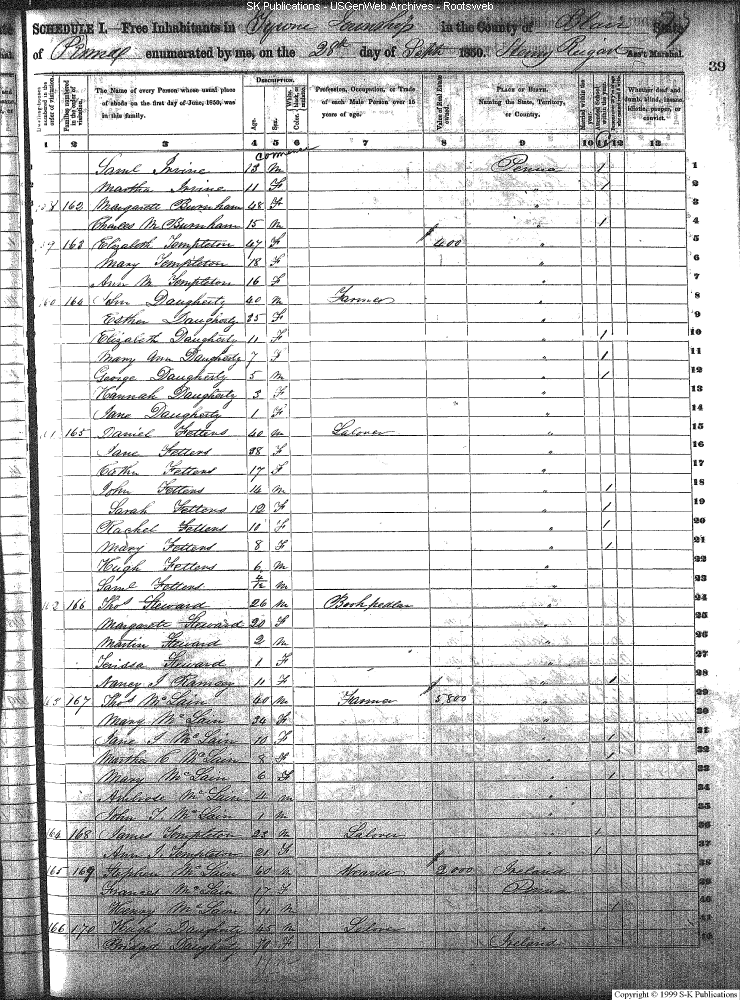 SK Publications - USGenWeb Archives - Rootsweb
SCHEDULE I.—Free Inhabitants in Tyrone Township in the County of Blair State
of Penna enumerated by me, on the 28th day of Sept 1850. Henry Ass't Marshal.
39
DESCRIPTION.
The Name of every Person whose usual place of abode on the first day of June, 1850, was in this family.
Age.
Sex.
Color.
Profession, Occupation, or Trade of each Male Person over 15 years of age.
Value of Real Estate owned.
PLACE OF BIRTH. Naming the State, Territory, or Country.
Whether deaf and dumb, blind, insane, idiotic, pauper, or convict.
1 2 3 4 5 6 7 8 9 10 11 12 13
Saml Irvine 13 M Penna / 1
Martha Irvine 11 F " / 2
162 Margarette Burnham 48 F " 3
Charles M Burnham 15 M " / 4
163 Elizabeth Templeton 47 F $ 400 " 5
Mary Templeton 18 F " 6
Ann M Templeton 16 F " 7
164 John Daugherty 40 M Farmer " 8
Esther Daugherty 35 F " 9
Elizabeth Daugherty 11 F " / 10
Mary Ann Daugherty 7 F " / 11
George Daugherty 5 M " / 12
Hannah Daugherty 3 F " 13
Jane Daugherty 1 F " 14
165 Daniel Fetters 40 M Labover " 15
Jane Fetters 38 F " 16
Fetters 17 F " 17
John Fetters 14 M " / 18
Sarah Fetters 12 F " / 19
Rachel Fetters 10 F " / 20
Mary Fetters 8 F " / 21
Hugh Fetters 6 M " 22
Saml Fetters 4/12 M " 23
166 Thos Steward 26 M " 24
Margarette Steward 20 F " 25
Martin Steward 2 M " 26
Steward 1 F " 27
Nancy J 11 F " / 28
167 Thos McLain 40 M Farmer $ 5800 " 29
Mary McLain 34 F " 30
Jane J McLain 10 F " / 31
Martha C McLain 8 F " / 32
Mary McLain 6 F " / 33
Ambrose McLain 4 M " 34
John T McLain 1 M " 35
168 James Templeton 22 M Labover " / 36
Ann J Templeton 21 F " / 37
169 Stephen McLain 60 M Weaver $ 2,000 Ireland 38
Frances McLain 17 F Penna
Henry McLain 11 M " /
166 170 Hugh Daugherty 45 M Labover " 41
Bridget Daugherty 70 F Ireland
Copyright © 1999 S-K Publications